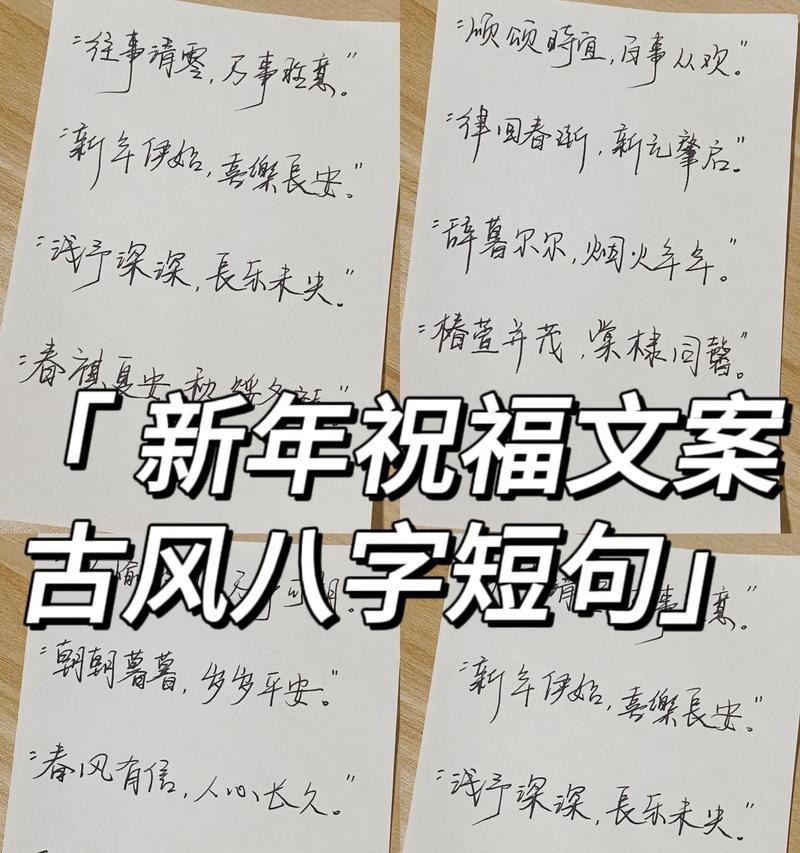 “往事清零，万事胜意。”
“新年伊始，喜樂長安。”
“浅予深深，長乐未央。”
“春祺夏安，秋绥冬禧。”
“颂颂時宜，百事从欢。”
“律回春渐，新元肇启。”
“辞暮尔尔，烟火年年。”
“椿萱并茂，棠棣同馨。”
「新年祝福文案
古风八字短句」
“朝朝暮暮，岁岁平安。”
“春风有信，人心长久。”
“新年伊始，喜樂長安。”
“浅予深深，長乐未央。”